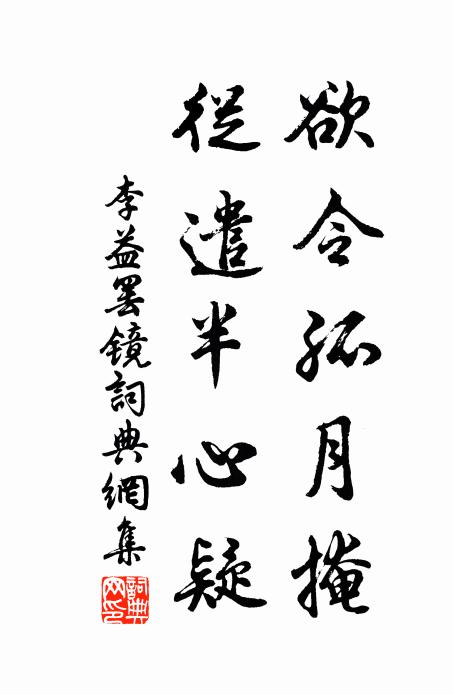 欲令孤月掩
從遣半心疑
李益罢鏡詞典網集
詞典
网印